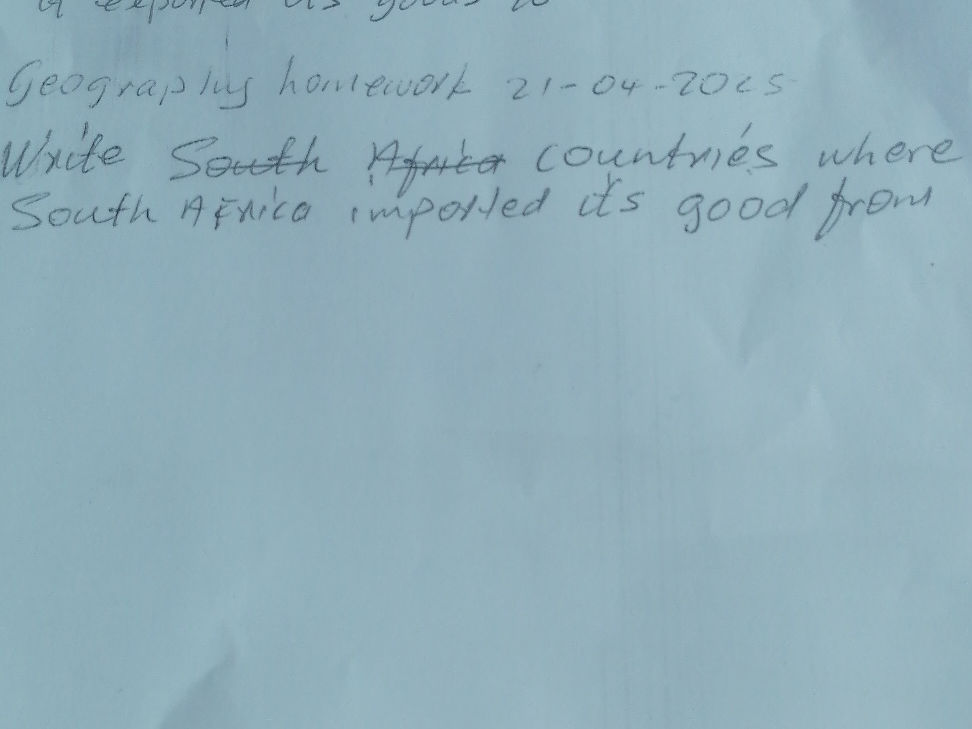 exported its goods to
Geography homework 21-04-2025
Write South Africa countries where
South Africa imported its good from